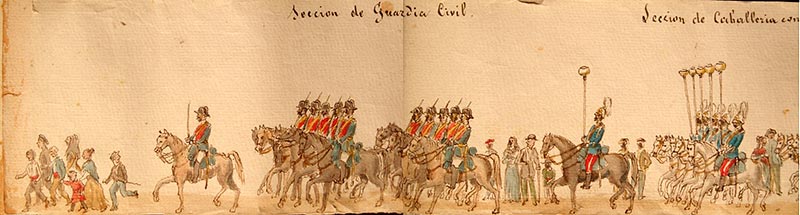 Seccion de Guardia Civil.
Seccion de Caballeria con